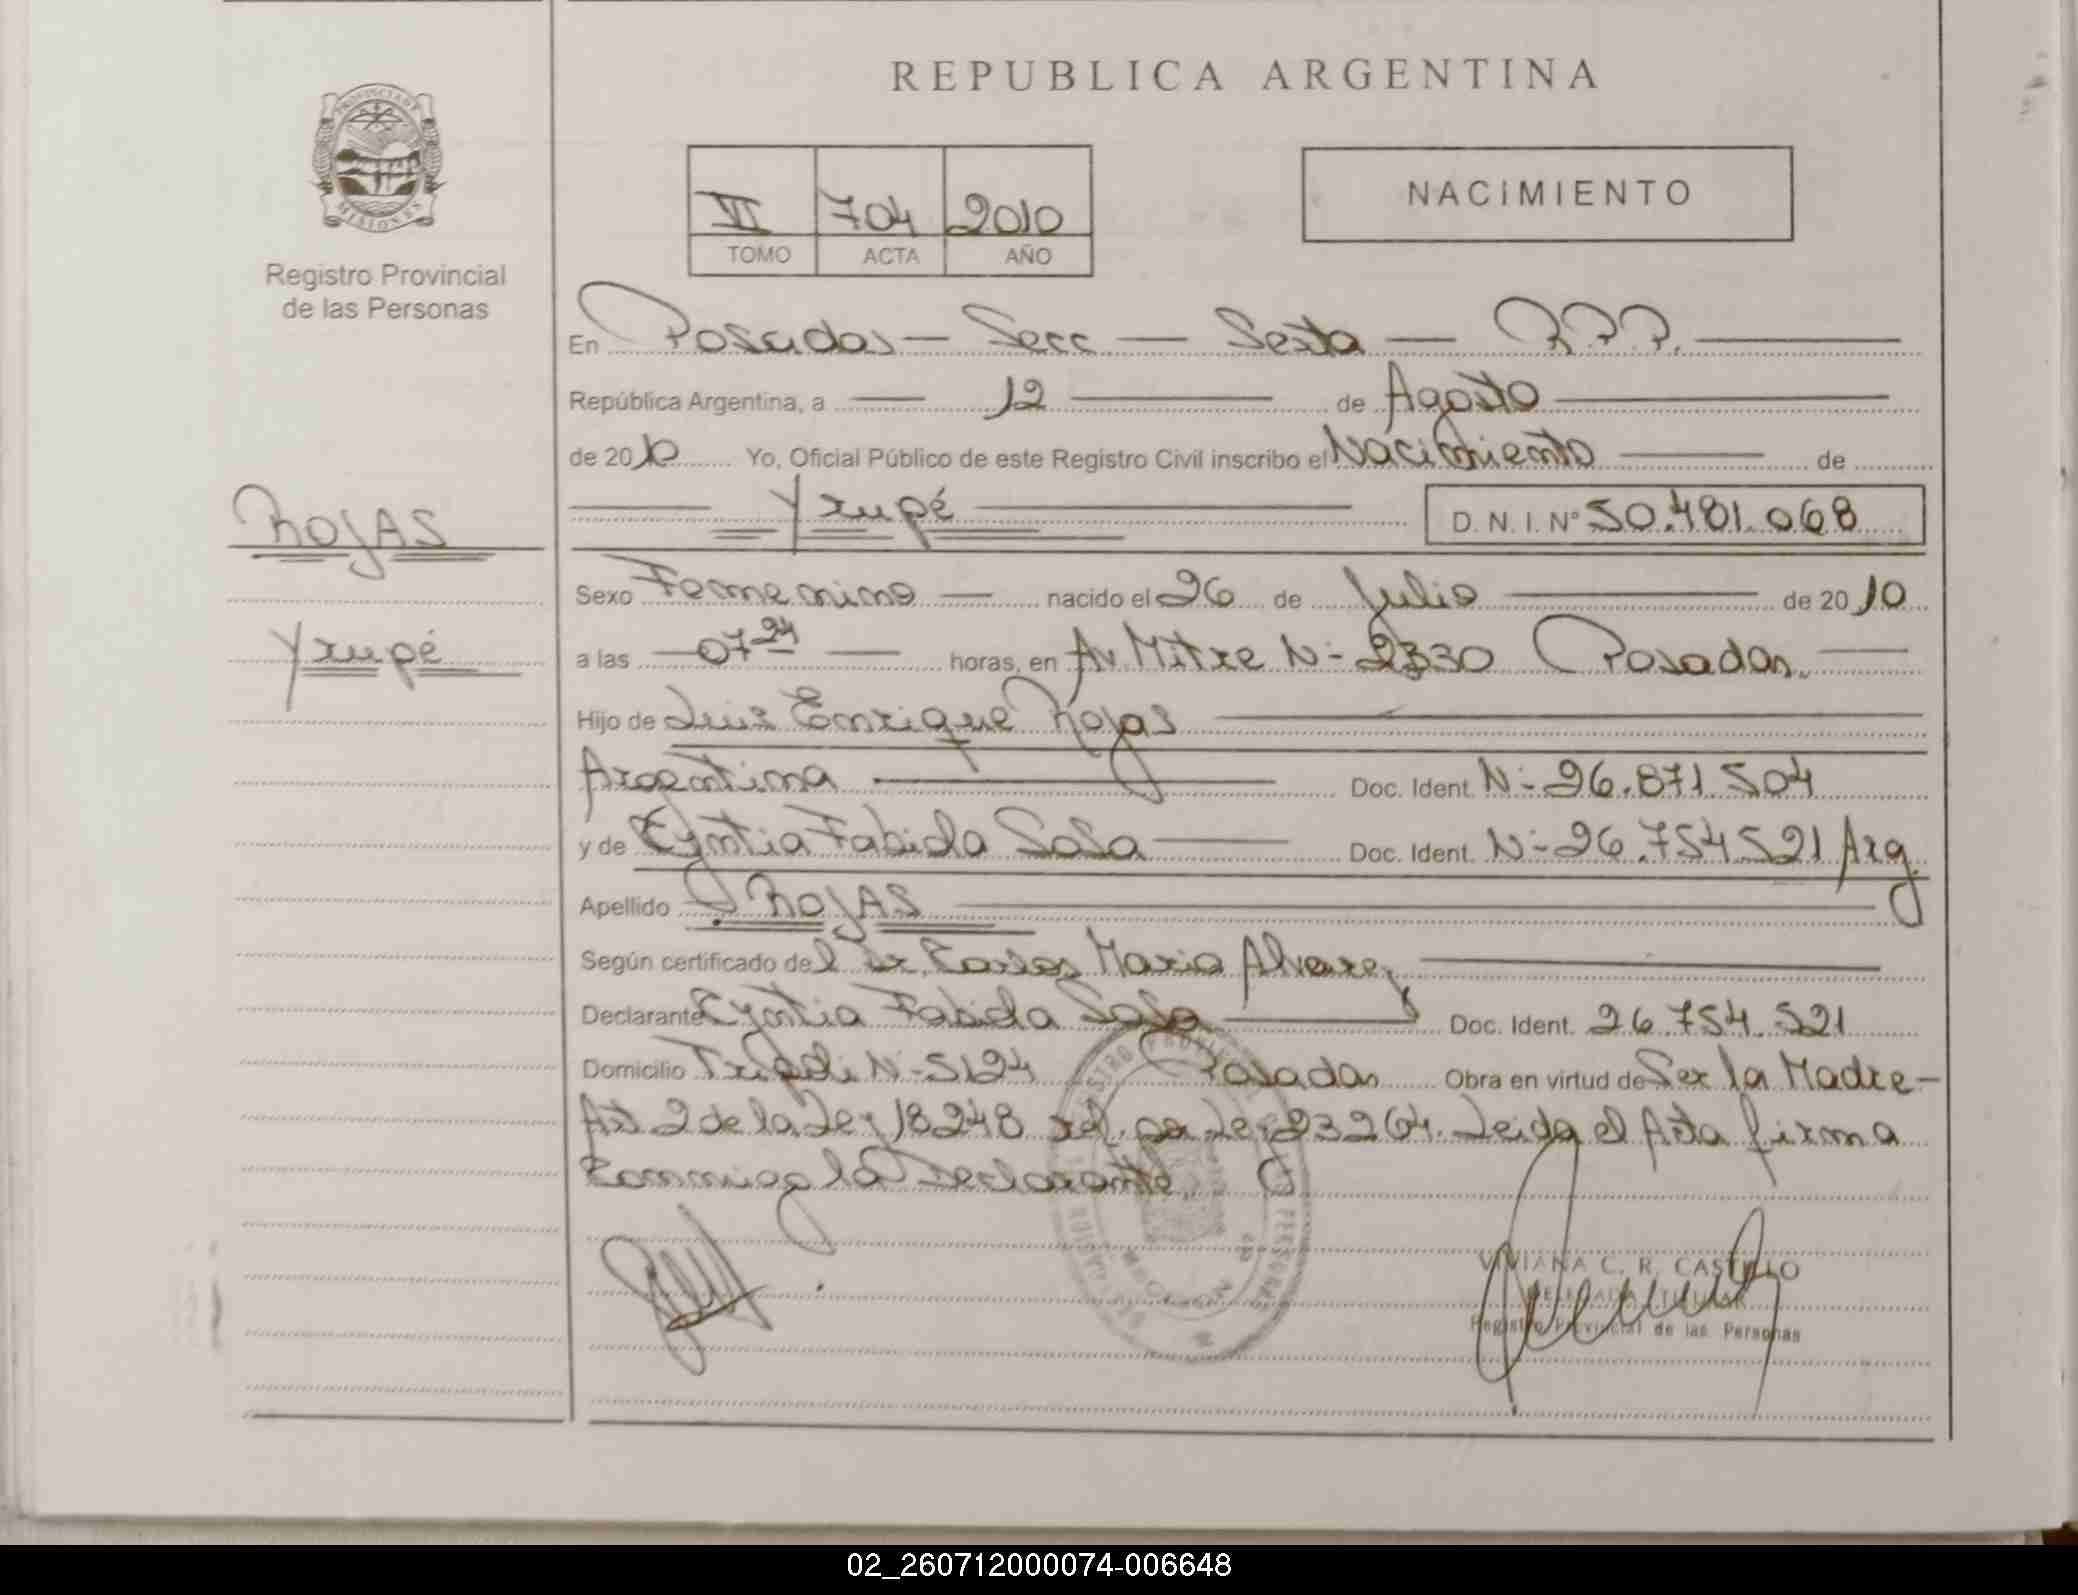 REPUBLICA ARGENTINA
PROVINCIA DE
MISIONES
Registro Provincial
de las Personas
VI 704 2010
TOMO ACTA AÑO
NACIMIENTO
En Posadas — Secc — Sexta — R.P.P.
República Argentina, a 12 de Agosto
de 2010 Yo, Oficial Público de este Registro Civil inscribo el Nacimiento de
Yrupé D. N. I. Nº 50.481.068
ROJAS
Yrupé
Sexo Femenino nacido el 26 de Julio de 2010
a las 07 24 horas, en Av. Mitre N- 2330 Posadas.
Hijo de Luis Enrique Rojas
Argentina Doc. Ident. N- 26.871.504
y de Cyntia Fabiola Sosa Doc. Ident. N- 26.754.521 Arg.
Apellido ROJAS
Según certificado del Dr. Carlos Maria Alvarez
Declarante Cyntia Fabiola Sosa Doc. Ident. 26.754.521
Domicilio N- 5124 Posadas Obra en virtud de Ser la Madre-
Art 2 de la Ley 18248 ref. por Ley 23264. Leida el Acta firma
Conmigo la Declarante
VIVIANA C. R. CASTILLO
DELEGADA TITULAR
Registro Provincial de las Personas
02_260712000074-006648